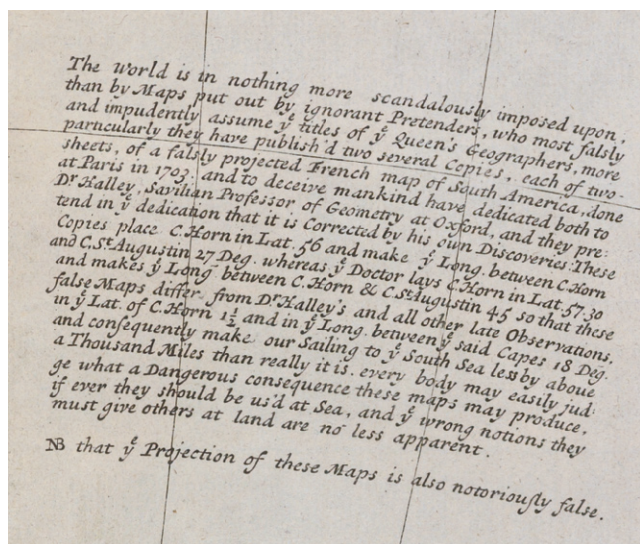 The World is in nothing more scandalously imposed upon,
than by Maps put out by ignorant Pretenders, who most falsly
and impudently assume yͤ titles of yͤ Queen's Geographers, more
particularly they have publish'd two several Copies, each of two-
sheets, of a falsly projected French map of South America, done
at Paris in 1703. and to deceive mankind have dedicated both to
Dʳ Halley, Savilian Professor of Geometry at Oxford, and they pre-
tend in yͤ dedication that it is Corrected by his own Discoveries: These
Copies place C. Horn in Lat. 56 and make yͤ Long. between C. Horn
and C. Sᵗ Augustin 27 Deg. whereas yͤ Doctor lays C. Horn in Lat. 57.30
and makes yͤ Long between C. Horn & C. Sᵗ Augustin 45 so that these
false Maps differ from Dʳ Halley's and all other late Observations,
in yͤ Lat. of C. Horn 1½ and in yͤ Long. between yͤ said Capes 18 Deg.
and consequently make our Sailing to yͤ South Sea less by aboue
a Thousand Miles than really it is. every body may easily jud-
ge what a Dangerous consequence these maps may produce,
if ever they should be us'd at Sea, and yͤ wrong notions they
must give others at land are no less apparent.
NB that yͤ Projection of these Maps is also notoriouſly false.